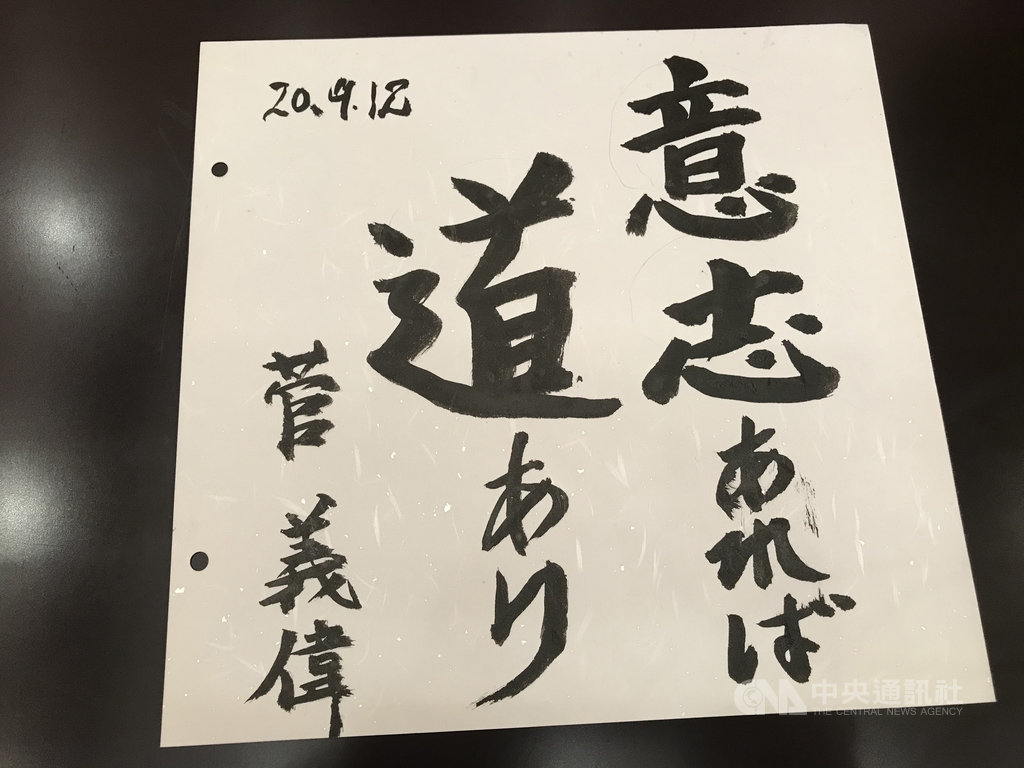 意志あれば
道あり
20.9.12
菅義偉
中央通訊社
THE CENTRAL NEWS AGENCY